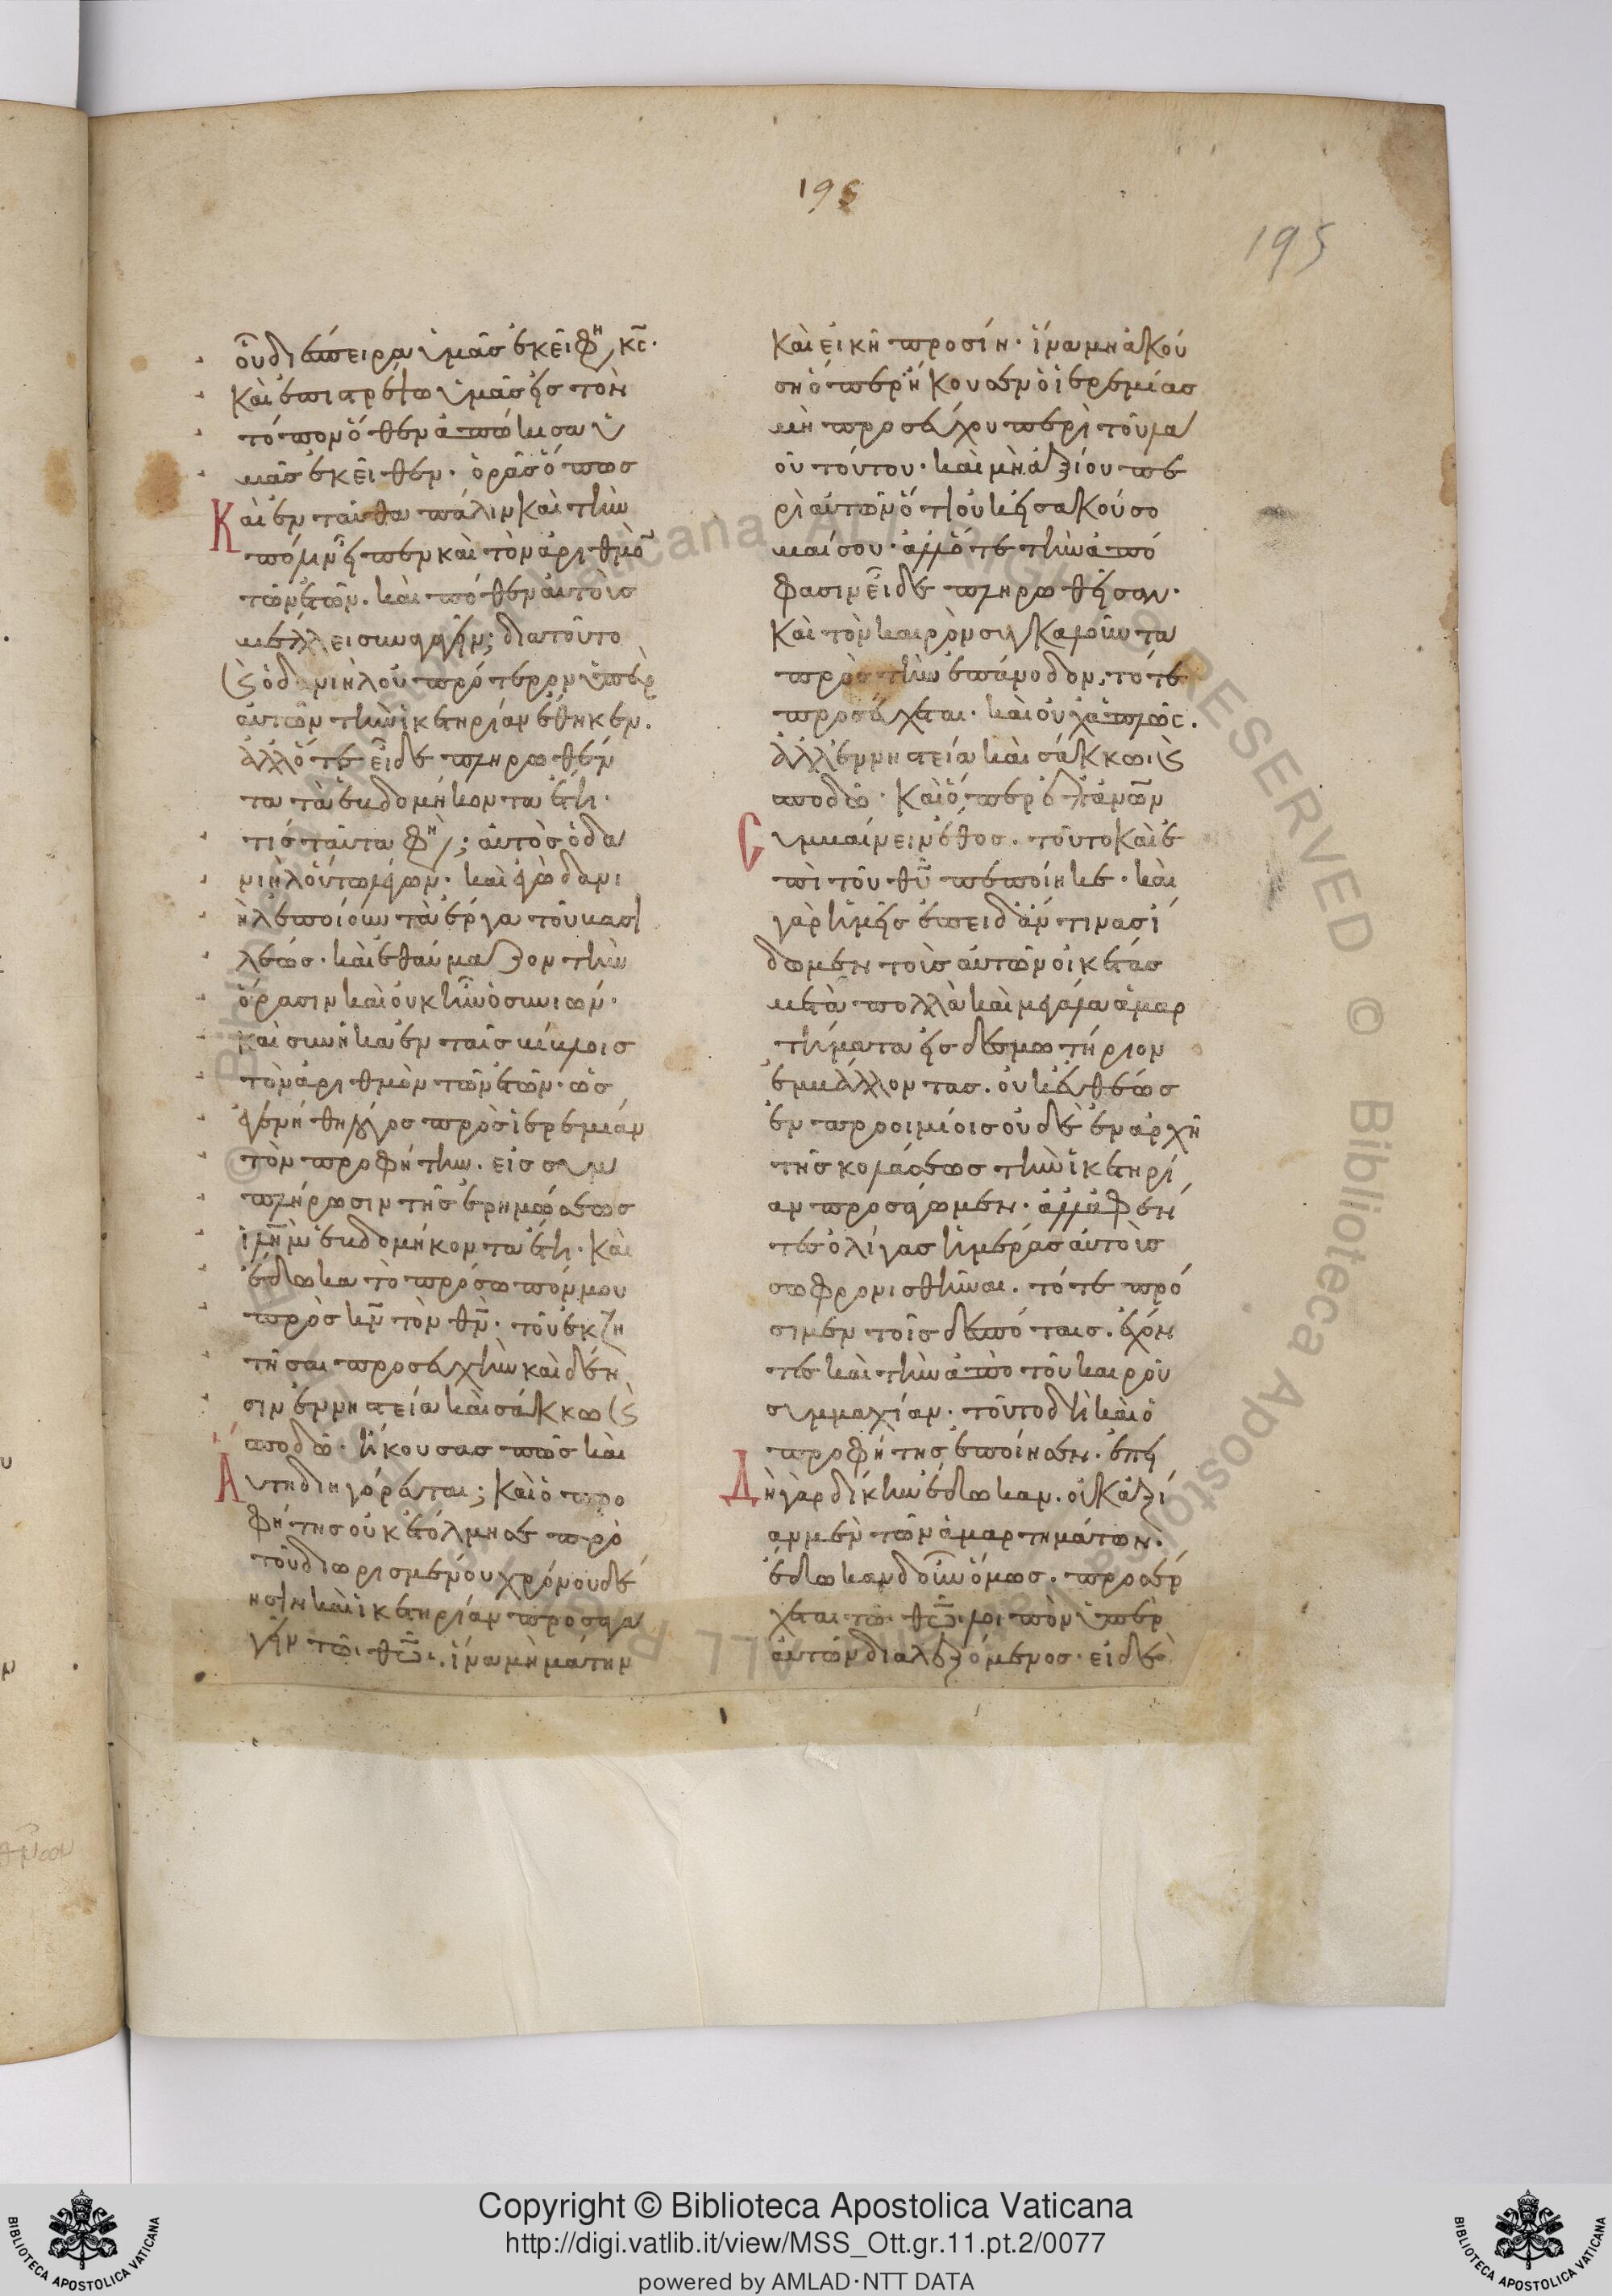 195
195
οὗ διέσπειρα ὑμᾶς ἐκεῖ φη κς·
καὶ ἐπιστρέψω ὑμᾶς εἰς τὸν
τόπον ὅθεν ἀπώκισα ὑ
μᾶς ἐκεῖθεν· ὁρᾶς ὅπως
Καὶ ἐνταῦθα πάλιν καὶ τὴν
πόλιν εἶπεν καὶ τὸν ἀριθμὸ
τῶν ἐτῶν· καὶ πόθεν αὐτοὺς
μέλλει συναγαγεῖν; διατοῦτο
καὶ ὁ δανιὴλ οὐ πρότερον ὑπὲρ
αὐτῶν τὴν ἱκετηρίαν ἔθηκεν·
ἀλλ' ὅτε εἶδε πληρωθέν
τα τὰ ἑβδομήκοντα ἔτη·
τίς ταῦτα φησὶ; αὐτὸς ὁ δα
νιὴλ οὕτω λέγων· καὶ ἐγὼ δανι
ὴλ ἐποίουν τὰ ἔργα τοῦ βασι
λέως· καὶ ἐθαύμαζον τὴν
ὅρασιν καὶ οὐκ ἦν ὁ συνιών·
καὶ συνῆκα ἐν ταῖς βίβλοις
τὸν ἀριθμὸν τῶν ἐτῶν· ὡς
ἐγενήθη λόγος πρὸς ἱερεμίαν
τὸν προφήτην· εἰς συμ
πλήρωσιν τῆς ἐρημώσεως
ἱλημ ἑβδομήκοντα ἔτη· καὶ
ἔδωκα τὸ πρόσωπόν μου
πρὸς κν τὸν θν· τοῦ ἐκζη
τῆσαι προσευχὴν καὶ δέη
σιν ἐν νηστεία καὶ σάκκω καὶ
σποδῶ· ἤκουσας πῶς καὶ
Αὕτη διηγόρευται; καὶ ὁ προ
φήτης οὐκ ἐτόλμησε πρὸ
τοῦ διωρισμένου χρόνου δέ
ησιν καὶ ἱκετηρίαν προσαγα
γεῖν τῶι θῶι· ἵνα μὴ μάτην
καὶ εἰκῆ προσίη· ἵνα μὴ ἀκού
ση ὅπερ ἤκουσεν ὁ ἱερεμίας
μὴ προσεύχου περὶ τοῦ λα
οῦ τούτου· καὶ μὴ ἀξίου πε
ρὶ αὐτῶν ὅτι οὐκ εἰσακούσο
μαί σου· ἀλλ' ὅτε τὴν ἀπό
φασιν εἶδε πληρωθεῖσαν·
καὶ τὸν καιρὸν συγκαλοῦντα
πρὸς τὴν ἐπάνοδον, τότε
προσεύχεται· καὶ οὐχ ἁπλῶς·
ἀλλ' ἐν νηστεία καὶ σάκκωι καὶ
σποδῶ· καὶ ὅπερ ἐπ' ἀνων
Συμβαίνειν ἔθος· τοῦτο καὶ ἐ
πὶ τοῦ θυ πεποίηκε· καὶ
γὰρ ἡμεῖς ἐπειδάν τινας ἴ
δωμεν τοὺς αὐτῶν οἰκέτας
μετὰ πολλὰ καὶ μεγάλα ἁμαρ
τήματα εἰς δεσμωτήριον
ἐμβάλλοντας· οὐκ εὐθέως
ἐν προοιμίοις οὐδὲ ἐν ἀρχῆ
τῆς κολάσεως τὴν ἱκετηρί
αν προσάγωμεν· ἀλλ' ἀφέν
τες ὀλίγας ἡμέρας αὐτοὺς
σωφρονισθῆναι· τότε πρό
σιμεν τοῖς δεσπόταις· ἔχον
τες καὶ τὴν ἀπὸ τοῦ καιροῦ
συμμαχίαν· τοῦτο δὴ καὶ ὁ
προφήτης ἐποίησεν· ἐπει
Δὴ γὰρ δίκην ἔδωκαν· οὐκ ἀξί
αν μὲν τῶν ἁμαρτημάτων·
ἔδωκαν δ' οὖν ὅμως· προσέρ
χεται τῶι θῶι λοιπὸν ὑπὲρ
αὐτῶν διαλεξόμενος· εἰ δὲ
Copyright © Biblioteca Apostolica Vaticana
http://digi.vatlib.it/view/MSS_Ott.gr.11.pt.2/0077
powered by AMLAD·NTT DATA
BIBLIOTECA APOSTOLICA VATICANA
BIBLIOTECA APOSTOLICA VATICANA